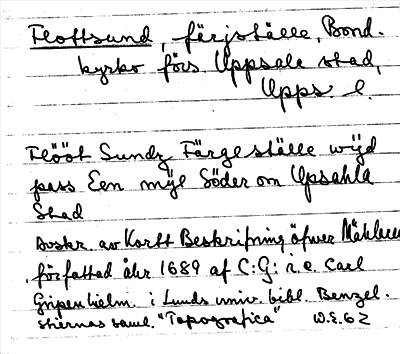 Flottsund, färjställe, Bond.
kyrko förs Uppsala stad,
Upps. l.
Flööt Sundz Färgeställe wijd
pass Een mijl Söder om Upsahla
Stad
Avskr. av Kortt Beskrifning öfwer Mählaren
författad åhr 1689 af C:G: i.e. Carl
Gripenhielm. i Lunds univ. bibl. Benzel.
stiernas saml. "Topografica" W.E. 62